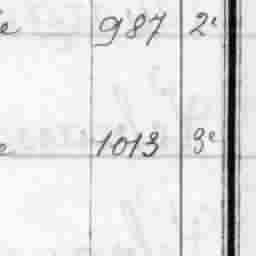 e 987 2e
e 1013 3e